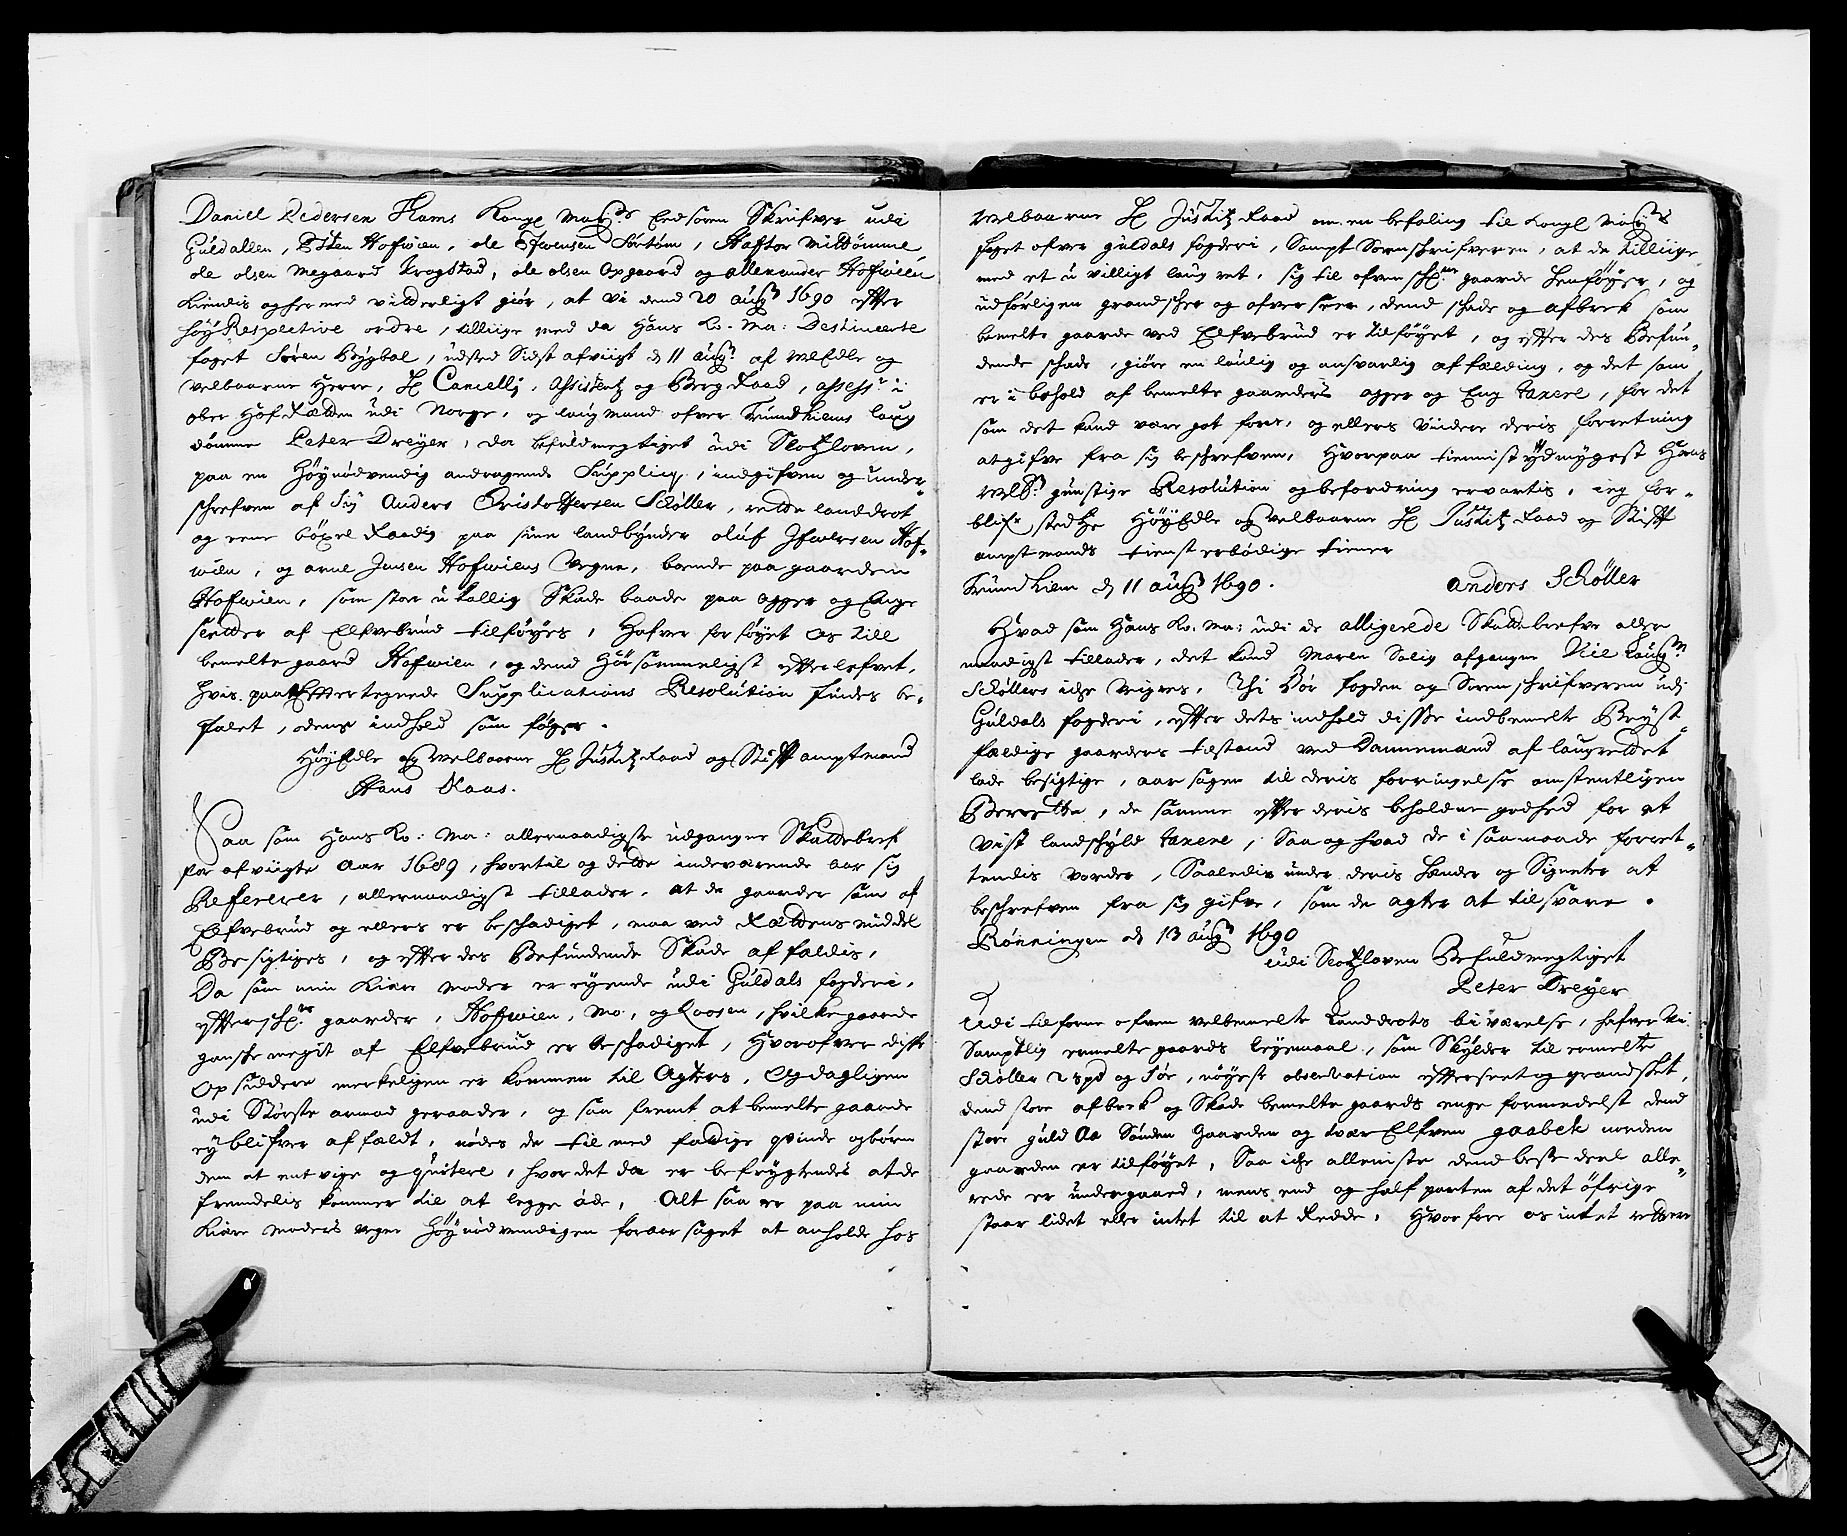 Daniell Pedersen Flams Kongl May:ts Eedsoren Skrifver udi
Guldallen, Esten Hofwien, ole Ifwersen Sørtøm, Haftor Mittømme
ole olsen Megaard Krogstad, ole olsen Opgaard og Allexander Hofwien
Kiendis og hermed vitterligt giør, at vi dend 20 aug: 1690 efter
høy Respective ordre, tilliige med da Hans Ko. Ma: Destineerte
foget Søren Bygbal, udsted Sidst afviigt d 11 aug: af WelEdle og
velbaarne Herre, H Cancellj, Assistentz og Berg Raad, assess:r i
ober Hof Rætten udi Norge, og laugmand ofver Trundhiems laug
dømme Peter Dreyer, da befuldmegtiget udi Slotzloven,
paa en Høynødvendig andragende Supplicq, indgifven og under¬
schrefven af Sig Anders Cristoffersen Schøller, rette landdrot
og eene bøxel Raadig paa sine landbynder oluf Ifwersen Hof¬
wien, og arne Jensen Hofwiens Vegne, boende paa gaarden
Hofwien, som stor u tallig Skade baade paa agger og Enge
seedder af Elfvebrud tilføyes, Hafver forføyet os till
bemelte gaard Hofwien, og dend Hørsommeligst efterlefvet,
hvis paa Effertegnede Supplications Resolution findes be¬
falet, odens indhold som følger.
Høy Edle og Velbaarne H Justitz Raad og Stift amptmand
Hans Kaas.
Saa som Hans Ko: Ma: allernaadigste udgangne Skattebref
for afviigte Aar 1689, hvortil og dette indeværende aar sig
Refererer, allernaadigst tillader, at de gaarder som af
Elfvebrud og ellers er beschadiget, maa ved Rættens middel
Besigtiges, og efter des Befindende Skade affældis,
Da som min kiære moder er eyende udi Guldals fogderi,
efterschr:ne gaarder, Hofwien, Mo, og Loosen, hvilke gaarde
gansche megit af Elfvebrud er beschadiget, Hvorofver disse
Opsiddere merkeligen er kommen til Agters, og dagligen
udi Største armod geraader, og saa fremt at bemelte gaarde
ey blifver affældt, nødes de til med fattige qvinde og børn
dem at entvige og quitere, hvor det da er befrygtendes at de
fremdelis kommer til at legge øde, Alt saa er paa min
Kiære moders vegne Høynødvendigen foraarsaget at anholde hos
Velbaarne H Justitz Raad om en befaling til Kongl May:ts
foget ofver Guldals fogderi, Sampt Sorenschrifveren, at de tilliige
med et u villigt laug ret, sig til ofvenschr:ne gaarde henføyer, og
udførligen grandscher og ofverseer, dend schade og afbrek som
bemelte gaarde ved Elfvebrud er tilføyet, og efter des Befun¬
dende schade, giøre en laulig og ansvarlig affælding, og det som
er i behold af bemelte gaarders agger og Eng taxere, for det
som det kand være got fore, og ellers Vindere deris forretning
at gifve fra sig beschrefven, Hvorpaa tienniste ydmygest Hans
WelB: gunstige Resolution og befordring ervartis, ieg for¬
blifr stedtze HøyEdle og velbaarne H Justitz Raad og Stift
amptmands tienst erbødige tiener
Trundhiem d 11 aug: 1690. Anders Schøller
Hvad som Hans Ko. Ma: udi de alligerede Skattebrefve aller
naadigst tillader, det kand Maren Salig afgangne Niels Laug:n
Schøllers iche vigres, Thi Bør fogden og Sorenschrifveren udj
Guldals fogderi, efter dets indhold disse indbemelte Brøst¬
fældige gaarders tilstand ved Dannemænd af laugrettet
lade besigtige, aarsagen til deris forringelse omstentligen
Berette, de samme efter deris beholdne godhed for et
vist landschyld taxere, Saa og hvad de i saa maade forret¬
tendis vorder, Saaledis under deris Hænder og Signeter at
beschrefven fra sig gifve, som de agter at tilsvare.
Rønningen d 13 aug: 1690
udi Slotzloven Befuldmegtiget
Peter Dreyer
Udi tilforne ofven velbemelte Landdrots biværelse, hafver Vi
Samptlig ermelte gaards leyemaal, som Skylder til ermelte
Schøller 2 spd og 1 ør, nøyeste observation efterseet og grandsket,
dend store afbrek og Skade bemelte gaards enge formedelst dend
store guld Aa Sønden gaarden og tvær Elfven gaabek norden
gaarden er tilføyet, Saa iche alleniste dend beste deel alle¬
rede er undergaaed, mens end og half parten af det øfrige
staar lidet eller intet til at Redde, Hvorfore os intet rettere